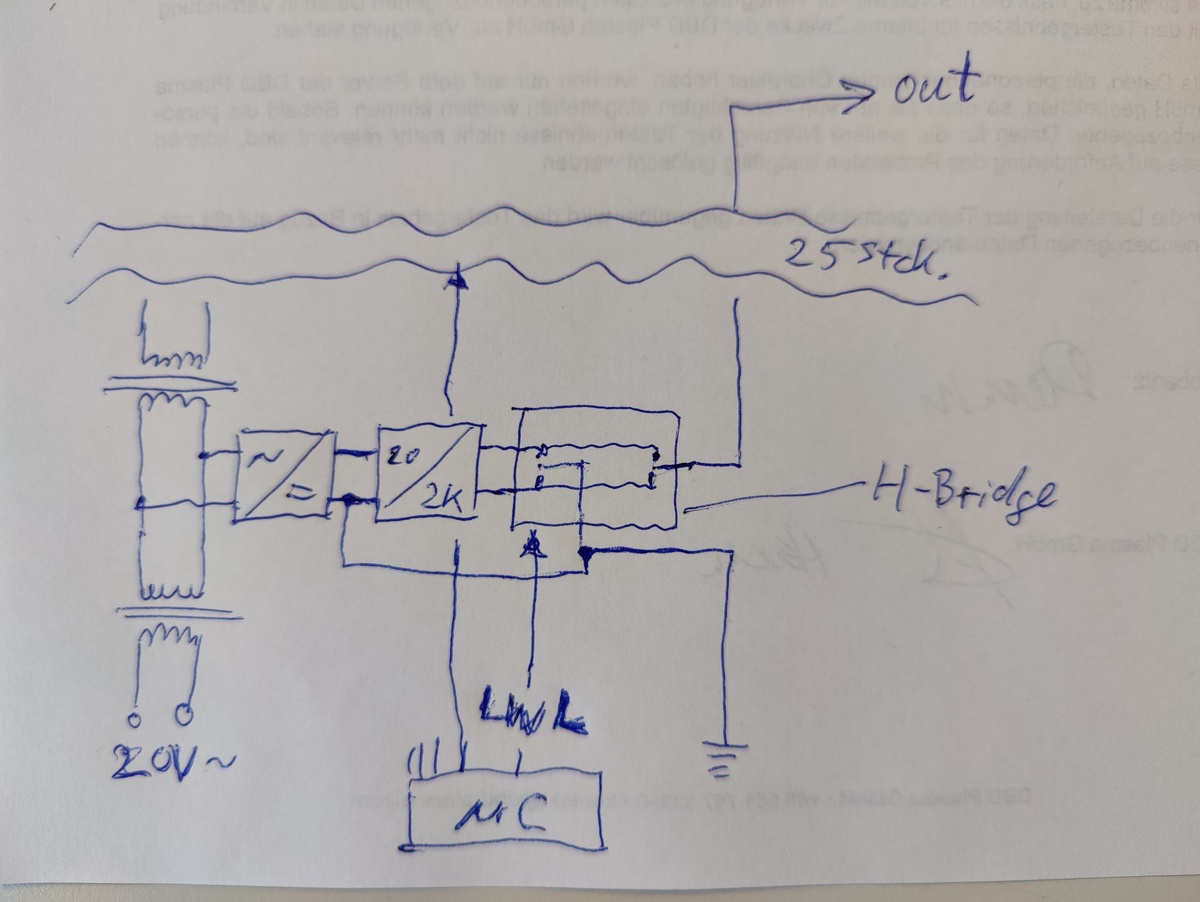 out
25 Stck.
~
=
20
2K
H-Bridge
LWL
20V~
µC